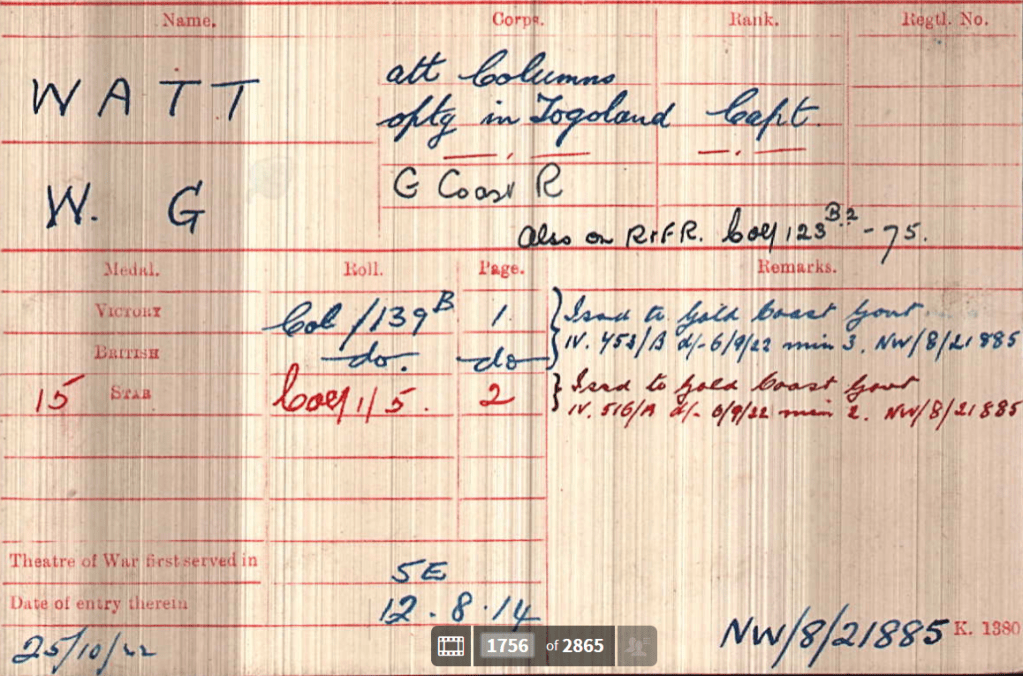 Name. Corps. Rank. Regtl. No.
WATT att Columns
optg in Togoland Capt.
W. G G Coast R
Also on R+F R. Col/123 B.2 - 75.
Medal. Roll. Page. Remarks.
VICTORY Col /139 B 1. } Issd to Gold Coast Govt
BRITISH do. do IV. 453/B d/- 6/9/22 min 3. NW/8/21885
15 STAR Col/1/5. 2 } Issd to Gold Coast Govt
IV. 516/A d/- 6/9/22 min 2. NW/8/21885
Theatre of War first served in 5E
Date of entry therein 12.8.14
25/10/22 NW/8/21885 K. 1380
1756 of 2865